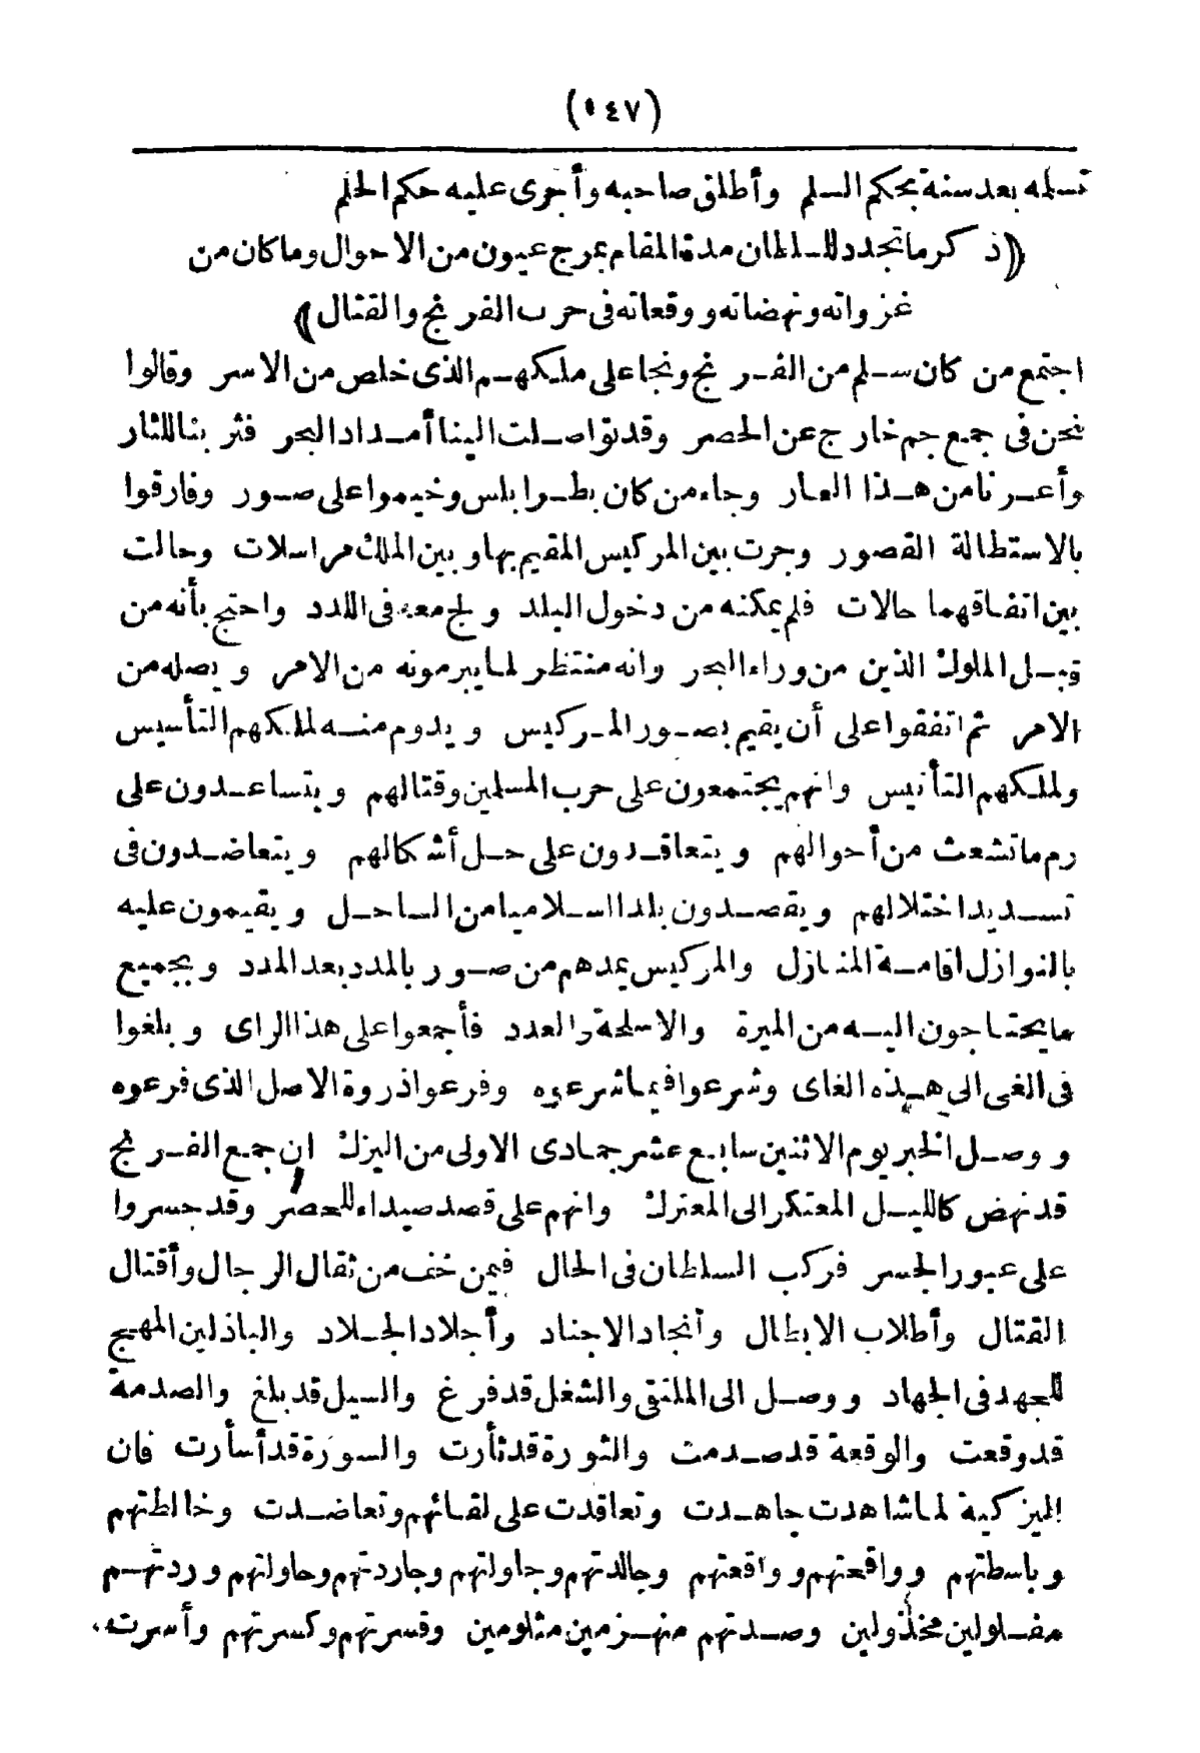 (١٤٧)
تسلمه بعد سنة بحكم السلم وأطلق صاحبه وأجرى عليه حكم الحلم
((ذكر ما تجدد للسلطان مدة المقام بمرج عيون من الاحوال وما كان من
غزواته ونهضاته ووقعاته فى حرب الفرنج والقتال))
اجتمع من كان سلم من الفرنج ونجا على ملكهم الذى خلص من الاسر وقالوا
نحن فى جمع جم خارج عن الحصر وقد تواصلت الينا أمداد البحر فثر بنا للثار
وأعرنا من هذا العار وجاء من كان بطرابلس وخيموا على صور وفارقوا
بالاستطالة القصور وجرت بين المركيس المقيم بها وبين الملك مراسلات وحالت
بين اتفاقهما حالات فلم يمكنه من دخول البلد ولج معه فى اللدد واحتج بأنه من
قبل الملوك الذين من وراء البحر وانه منتظر لما يبرمونه من الامر ويصله من
الامر ثم اتفقوا على أن يقيم بصور المركيس ويدوم منه لملكهم التأسيس
ولملكهم التأنيس وانهم يجتمعون على حرب المسلمين وقتالهم ويتساعدون على
رم ما تشعث من أحوالهم ويتعاقدون على حل أشكالهم ويتعاضدون فى
تسديد اختلالهم ويقصدون بلدا اسلاميا من الساحل ويقيمون عليه
بالنوازل اقامة المنازل والمركيس يمدهم من صور بالمدد بعد المدد وبجميع
ما يحتاجون اليه من الميرة والاسلحة والعدد فأجمعوا على هذا الراى وبلغوا
فى الغى الى هذه الغاى وشرعوا فيما شرعوه وفرعوا ذروة الاصل الذى فرعوه
ووصل الخبر يوم الاثنين سابع عشر جمادى الاولى من اليزك ان جمع الفرنج
قد نهض كالليل المعتكر الى المعترك وانهم على قصد صيداء للحصر وقد جسروا
على عبور الجسر فركب السلطان فى الحال فيمن خف من ثقال الرجال وأقتال
القتال وأطلاب الابطال وأنجاد الاجناد وأجلاد الجلاد والباذلين المهج
للجهد فى الجهاد ووصل الى الملتقى والشغل قد فرغ والسيل قد بلغ والصدمة
قد وقعت والوقعة قد صدمت والثورة قد ثأرت والسورة قد أسأرت فان
اليزكية لما شاهدت جاهدت وتعاقدت على لقائهم وتعاضدت وخالطتهم
وباسطتهم وواقعتهم وواقعتهم وجالدتهم وجاولتهم وجاردتهم وحاولتهم وردتهم
مفلولين مخذولين وصدتهم منهزمين مثلومين وقسرتهم وكسرتهم وأسرت